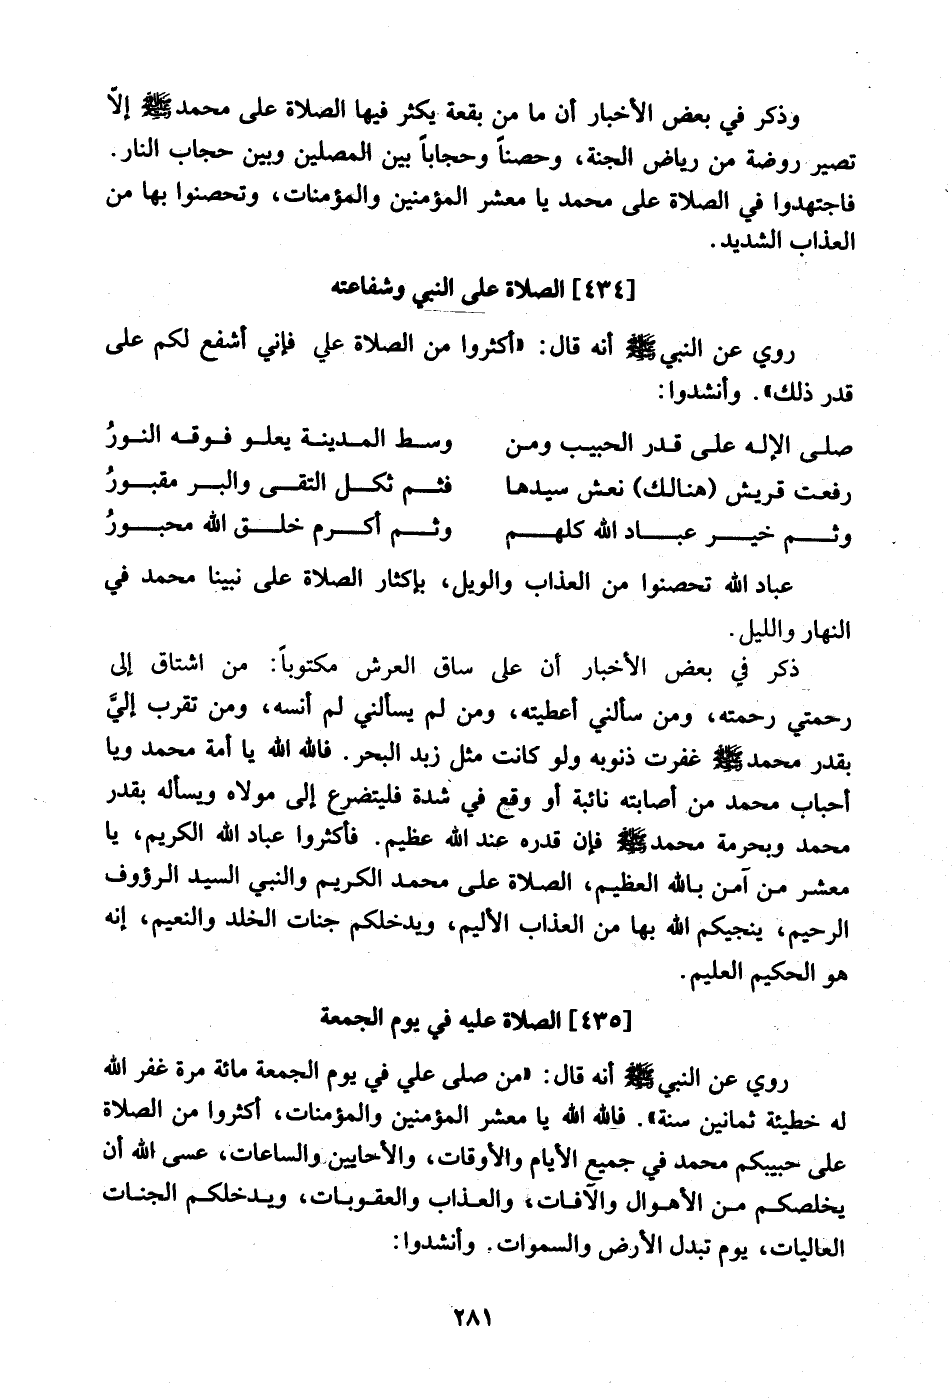 وذكر في بعض الأخبار أن ما من بقعة يكثر فيها الصلاة على محمد ﷺ إلاّ
تصير روضة من رياض الجنة، وحصناً وحجاباً بين المصلين وبين حجاب النار.
فاجتهدوا في الصلاة على محمد يا معشر المؤمنين والمؤمنات، وتحصنوا بها من
العذاب الشديد.
[٤٣٤] الصلاة على النبي وشفاعته
روي عن النبي ﷺ أنه قال: «أكثروا من الصلاة علي فإني أشفع لكم على
قدر ذلك». وأنشدوا:
صلى الإله على قدر الحبيب ومن وسط المدينة يعلو فوقه النورُ
رفعت قريش (هنالك) نعش سيدها فثم ثكل التقى والبر مقبورُ
وثم خير عباد الله كلهم وثم أكرم خلق الله محبورُ
عباد الله تحصنوا من العذاب والويل، بإكثار الصلاة على نبينا محمد في
النهار والليل.
ذكر في بعض الأخبار أن على ساق العرش مكتوباً: من اشتاق إلى
رحمتي رحمته، ومن سألني أعطيته، ومن لم يسألني لم أنسه، ومن تقرب إليَّ
بقدر محمد ﷺ غفرت ذنوبه ولو كانت مثل زبد البحر. فالله الله يا أمة محمد ويا
أحباب محمد من أصابته نائبة أو وقع في شدة فليتضرع إلى مولاه ويسأله بقدر
محمد وبحرمة محمد ﷺ فإن قدره عند الله عظيم. فأكثروا عباد الله الكريم، يا
معشر من آمن بالله العظيم، الصلاة على محمد الكريم والنبي السيد الرؤوف
الرحيم، ينجيكم الله بها من العذاب الأليم، ويدخلكم جنات الخلد والنعيم، إنه
هو الحكيم العليم.
[٤٣٥] الصلاة عليه في يوم الجمعة
روي عن النبي ﷺ أنه قال: «من صلى علي في يوم الجمعة مائة مرة غفر الله
له خطيئة ثمانين سنة». فالله الله يا معشر المؤمنين والمؤمنات، أكثروا من الصلاة
على حبيبكم محمد في جميع الأيام والأوقات، والأحايين والساعات، عسى الله أن
يخلصكم من الأهوال والآفات، والعذاب والعقوبات، ويدخلكم الجنات
العاليات، يوم تبدل الأرض والسموات. وأنشدوا:
٢٨١